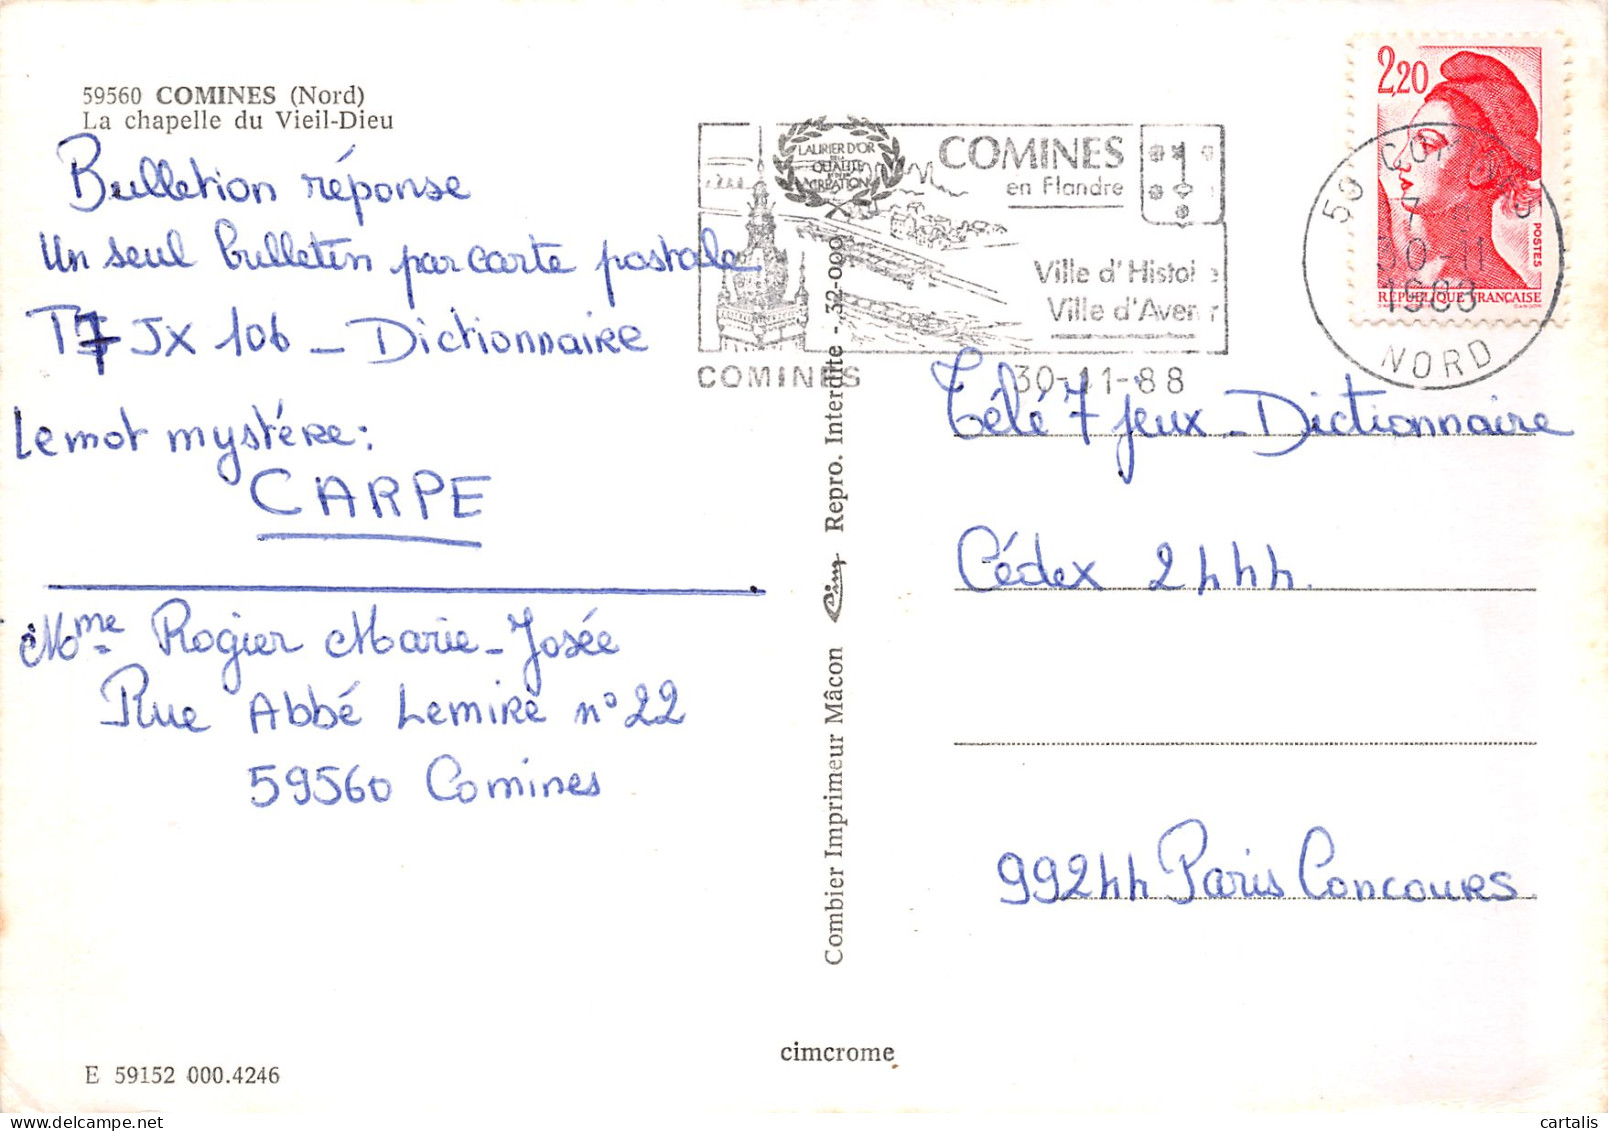 59560 COMINES (Nord)
La chapelle du Vieil-Dieu
Bulletion réponse
Un seul bulletin par carte postale
T7 JX 106 - Dictionnaire
Le mot mystère:
CARPE
Mme Rogier Marie-Josée
Rue Abbé Lemire n° 22
59560 Comines
E 59152 000.4246
Combier Imprimeur Mâcon
Repro. Interdite - 32-000
cimcrome
LAURIER D'OR
QUALITE
CREATION
COMINES
en Flandre
Ville d'Histoire
Ville d'Avenir
COMINES
30-11-88
2,20
POSTES
RÉPUBLIQUE FRANÇAISE
59 COMINES
30-11
1988
NORD
Télé 7 jeux - Dictionnaire
Cédex 2444.
99244 Paris Concours
cartalis